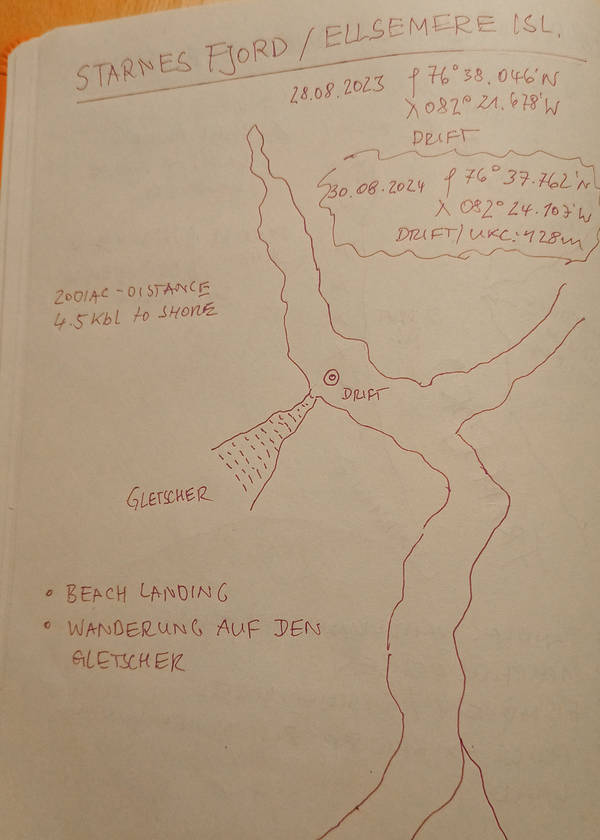 STARNES FJORD / ELLSEMERE ISL.
28.08.2023 φ 76° 38.046'N
λ 082° 21.678'W
DRIFT
30.08.2024 φ 76° 37.762'N
λ 082° 24.107'W
DRIFT/UKC: 128m
ZODIAC-DISTANCE
4.5 Kbl to SHORE
DRIFT
GLETSCHER
• BEACH LANDING
• WANDERUNG AUF DEN
GLETSCHER